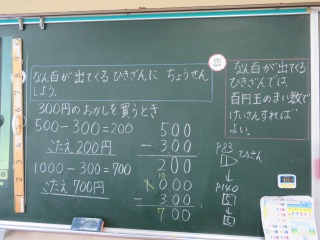 なん百が出てくる ひきざんに ちょうせん
しよう。
300円のおかしを買うとき
500-300=200
こたえ 200円
1000-300=700
こたえ 700円
500
-300
200
10
1000
-300
700
なん百が出てくる
ひきざんでは
百円玉のまい数で
けいさんすれば
よい。